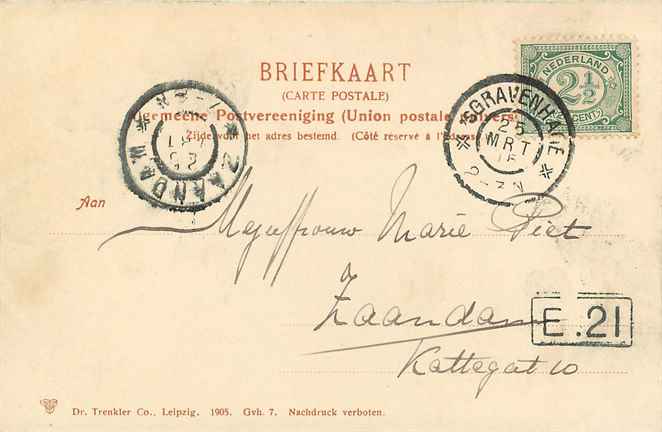 BRIEFKAART
(CARTE POSTALE)
Algemeene Postvereeniging (Union postale universelle)
Zijde voor het adres bestemd. (Côté réservé à l'adresse)
NEDERLAND
2½
CENT
'SGRAVENHAGE
25
MRT
2-3N
ZAANDAM
Aan Mejuffrouw Marie Piet
Zaandam
E.21
Kattegat 10
Dr. Trenkler Co., Leipzig. 1905. Gvh. 7. Nachdruck verboten.